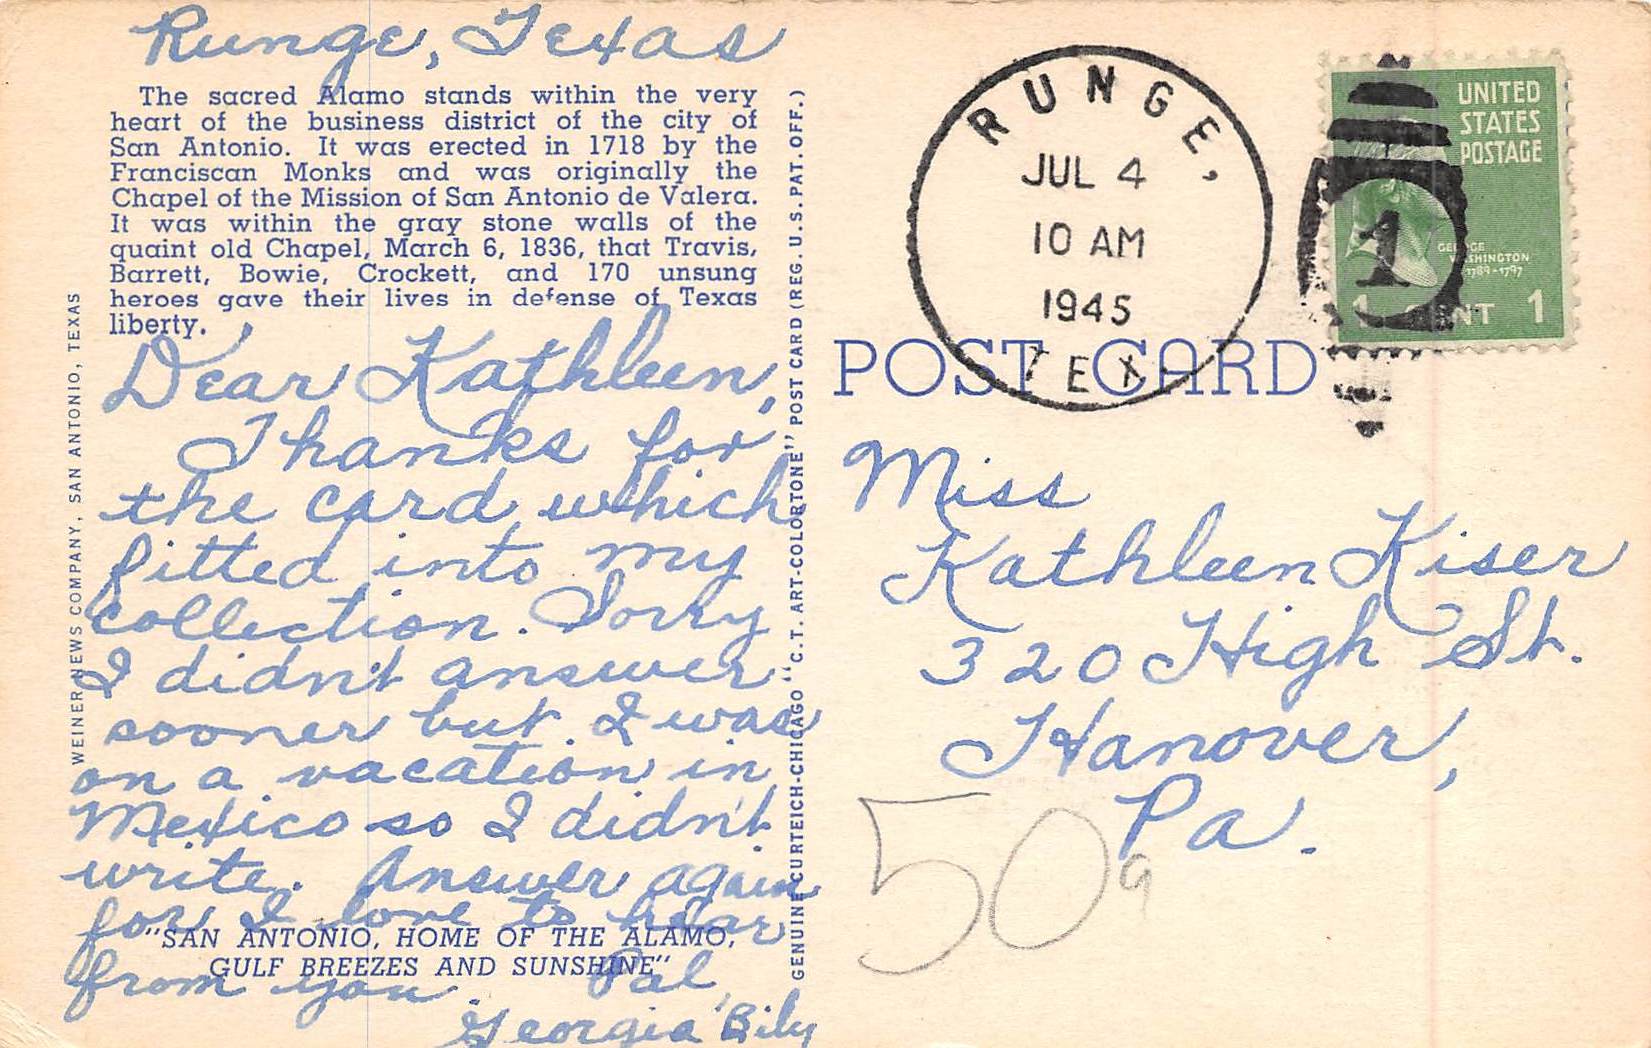 Runge, Texas
The sacred Alamo stands within the very
heart of the business district of the city of
San Antonio. It was erected in 1718 by the
Franciscan Monks and was originally the
Chapel of the Mission of San Antonio de Valera.
It was within the gray stone walls of the
quaint old Chapel, March 6, 1836, that Travis,
Barrett, Bowie, Crockett, and 170 unsung
heroes gave their lives in defense of Texas
liberty.
Dear Kathleen,
Thanks for
the card which
fitted into my
collection. Sorry
I didn't answer
sooner but I was
on a vacation in
Mexico so I didn't
write. Answer again
for I love to hear
from you. Pal,
Georgia Bily
"SAN ANTONIO, HOME OF THE ALAMO,
GULF BREEZES AND SUNSHINE"
WEINER NEWS COMPANY, SAN ANTONIO, TEXAS
GENUINE CURTEICH-CHICAGO "C.T. ART-COLORTONE" POST CARD (REG. U.S. PAT. OFF.)
RUNGE,
JUL 4
10 AM
1945
TEX.
UNITED
STATES
POSTAGE
GEORGE
WASHINGTON
1789-1797
1 CENT 1
1
POST CARD
Miss
Kathleen Kiser
320 High St.
Hanover,
Pa.
50